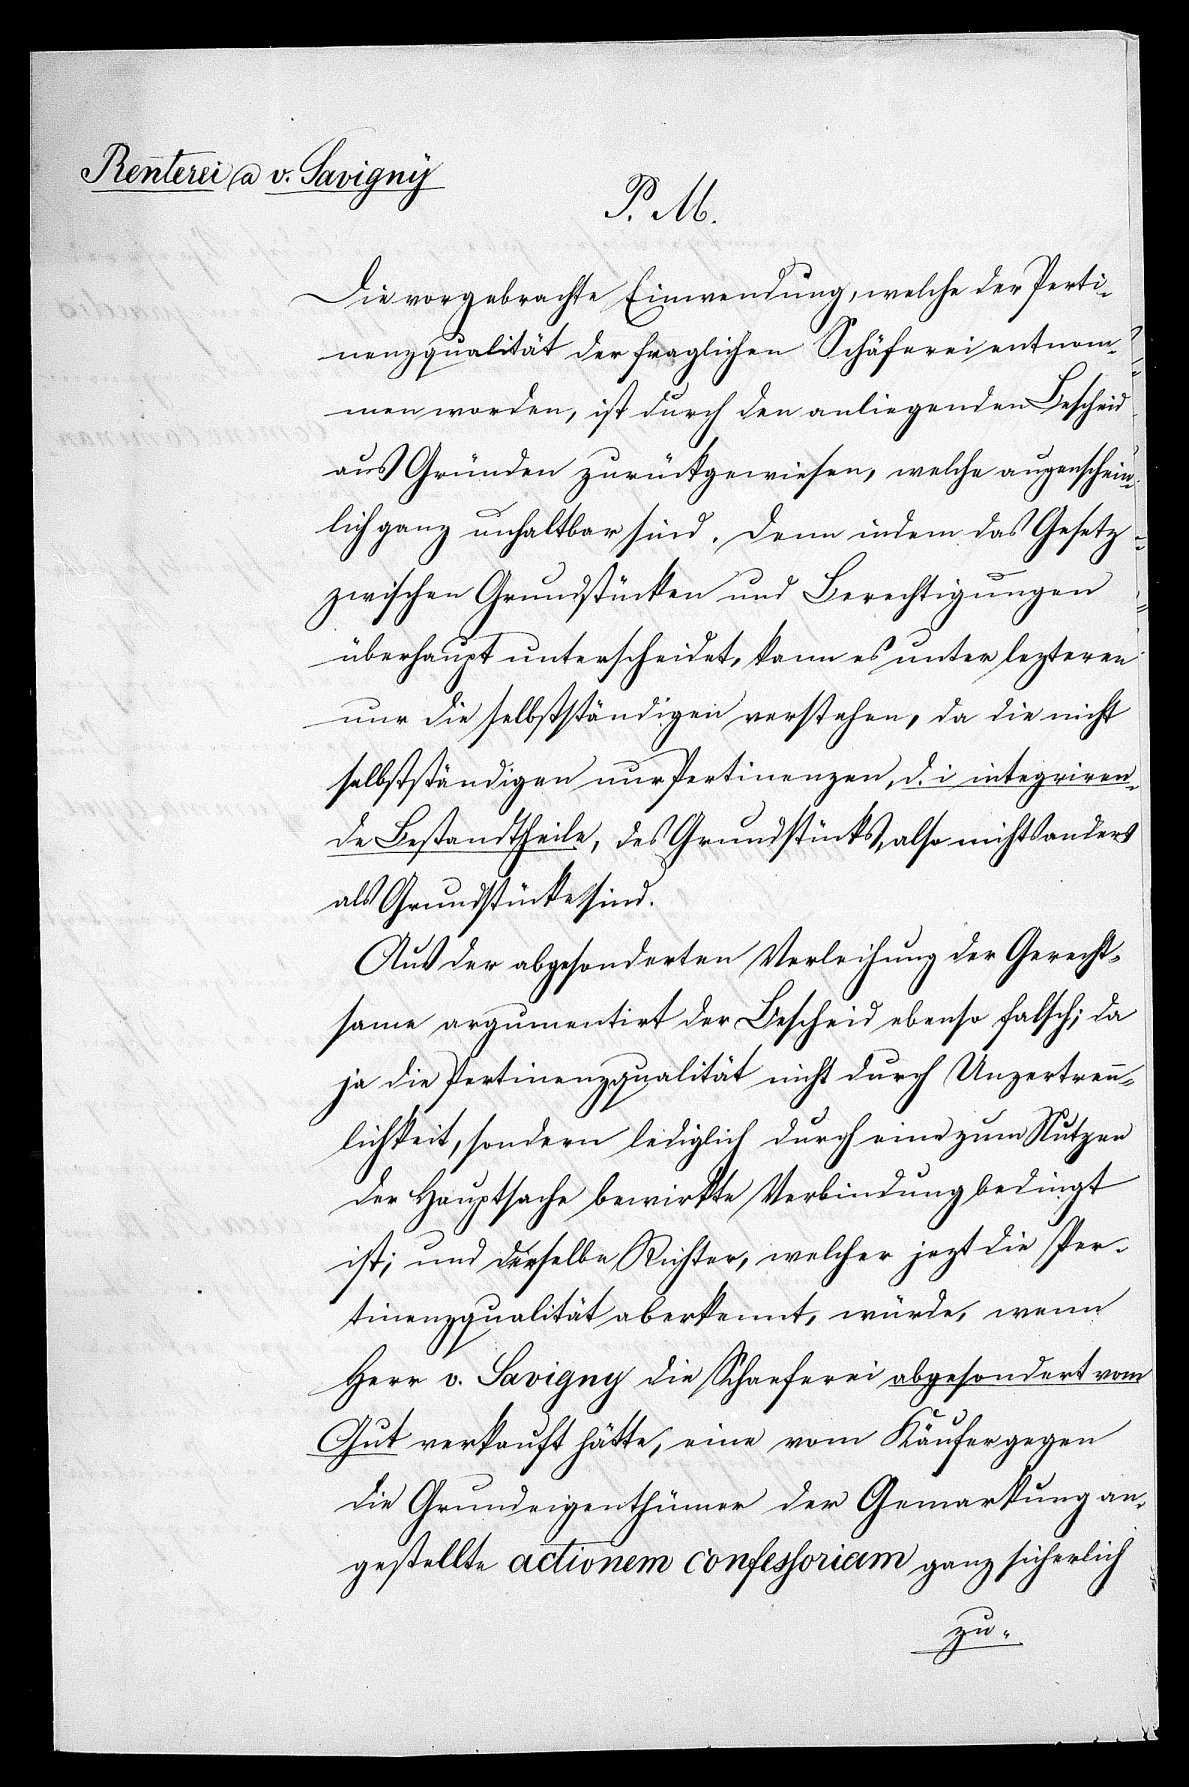 Renterei a v. Savigny
P. M.
Die vorgebrachte Einwendung, welche der Perti-
nenzqualität der fraglichen Schäferei entnom-
men worden, ist durch den anliegenden Bescheid
aus Gründen zurückgewiesen, welche augenschein-
lich ganz unhaltbar sind. Denn indem das Gesetz
zwischen Grundstücken und Berechtigungen
überhaupt unterscheidet, kann es unter lezteren
nur die selbstständigen verstehen, da die nicht
selbstständigen nur Pertinenzen, d. i integriren-
de Bestandtheile, des Grundstücks, also nichts anders
als Grundstücke sind.
Aus der abgesonderten Verleihung der Gerecht-
same argumentirt der Bescheid ebenso falsch; da
ja die Pertinenzqualität nicht durch Unzertren̄-
lichkeit, sondern lediglich durch eine zum Nutzen
der Hauptsache bewirkte Verbindung bedingt
ist; und derselbe Richter, welcher jezt die Per-
tinenzqualität aberkennt, würde, wenn
Herr v. Savigny die Schaeferei abgesondert vom
Gut verkauft hätte, eine vom Käufer gegen
die Grundeigenthümer der Gemarkung an-
gestellte actionem confessoriam ganz sicherlich
zu-